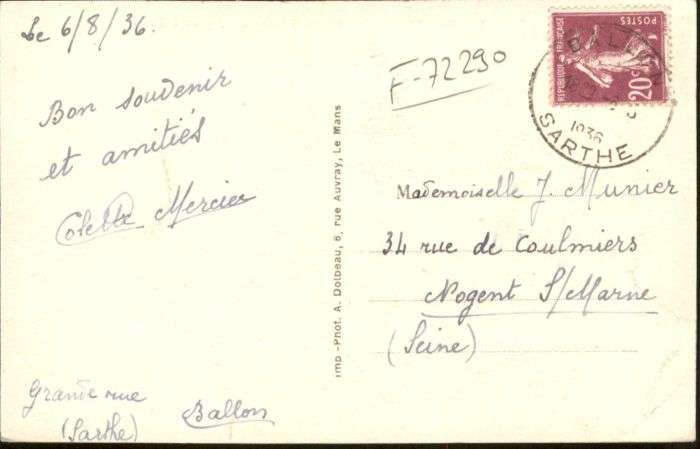 Le 6/8/36.
Bon souvenir
et amitiés
Colette Mercier
Grande rue
(Sarthe)
Ballon
Imp-Phot. A. Dolbeau, 6, rue Auvray, Le Mans
F-72290
REPUBLIQUE FRANÇAISE
POSTES
20c
BALLON
1936
SARTHE
Mademoiselle J. Munier
34 rue de Coulmiers
Nogent S/Marne
(Seine)